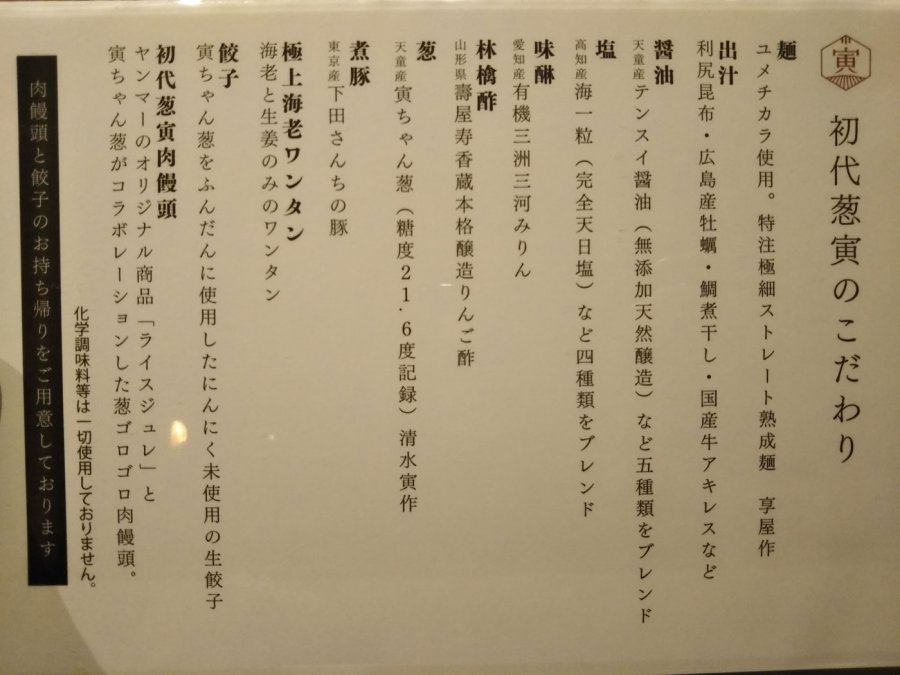 寅
初代葱寅のこだわり
麺
ユメチカラ使用。特注極細ストレート熟成麺 享屋作
出汁
利尻昆布・広島産牡蠣・鯛煮干し・国産牛アキレスなど
醤油
天童産テンスイ醤油（無添加天然醸造）など五種類をブレンド
塩
高知産海一粒（完全天日塩）など四種類をブレンド
味醂
愛知産有機三洲三河みりん
林檎酢
山形県壽屋寿香蔵本格醸造りんご酢
葱
天童産寅ちゃん葱（糖度21.6度記録）清水寅作
煮豚
東京産下田さんちの豚
極上海老ワンタン
海老と生姜のみのワンタン
餃子
寅ちゃん葱をふんだんに使用したにんにく未使用の生餃子
初代葱寅肉饅頭
ヤンマーのオリジナル商品「ライスジュレ」と
寅ちゃん葱がコラボレーションした葱ゴロゴロ肉饅頭。
化学調味料等は一切使用しておりません。
肉饅頭と餃子のお持ち帰りをご用意しております